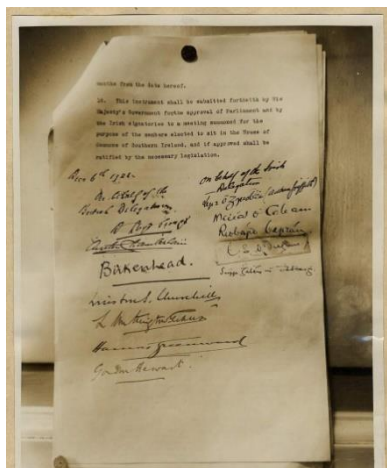 months from the date hereof.
18. This instrument shall be submitted forthwith by His
Majesty's Government for the approval of Parliament and by
the Irish signatories to a meeting summoned for the
purpose of the members elected to sit in the House of
Commons of Southern Ireland, and if approved shall be
ratified by the necessary legislation.
6th 1921.
On behalf of the
British Delegation
D Lloyd George
Austen Chamberlain
Birkenhead.
Winston S. Churchill
L Worthington-Evans
Hamar Greenwood
Gordon Hewart
On behalf of the Irish
Delegation
(Arthur Griffith)